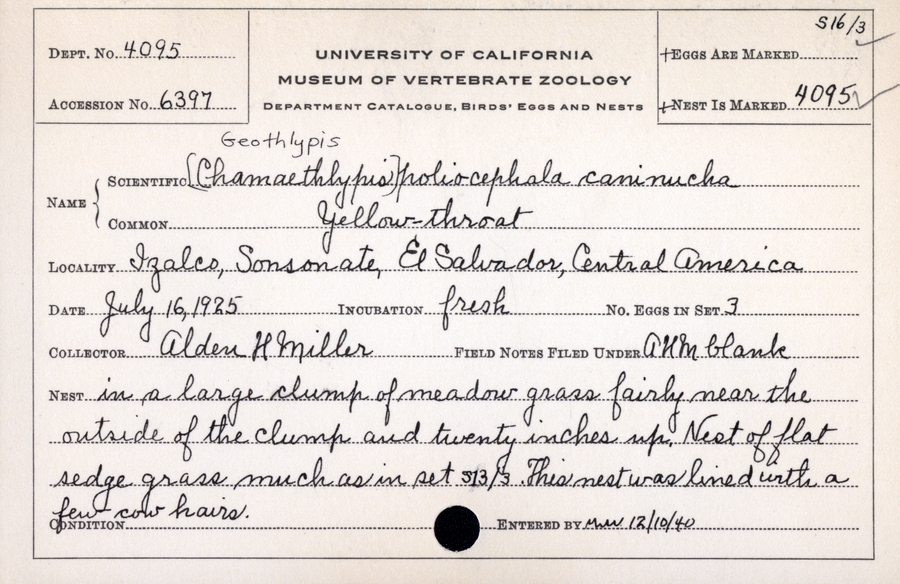 S16/3
Dept. No. 4095
UNIVERSITY OF CALIFORNIA
MUSEUM OF VERTEBRATE ZOOLOGY
Department Catalogue, Birds' Eggs and Nests
Eggs Are Marked
Accession No. 6397
Nest Is Marked 4095
Geothlypis
Name
Scientific [Chamaethlypis] poliocephala caninucha
Common Yellow-throat
Locality Izalco, Sonsonate, El Salvador, Central America
Date July 16, 1925 Incubation fresh No. Eggs in Set 3
Collector Alden H Miller Field Notes Filed Under AHM blank
Nest in a large clump of meadow grass fairly near the
outside of the clump and twenty inches up. Nest of flat
sedge grass much as in set S13/3. This nest was lined with a
few cow hairs.
Condition Entered by 12/10/40